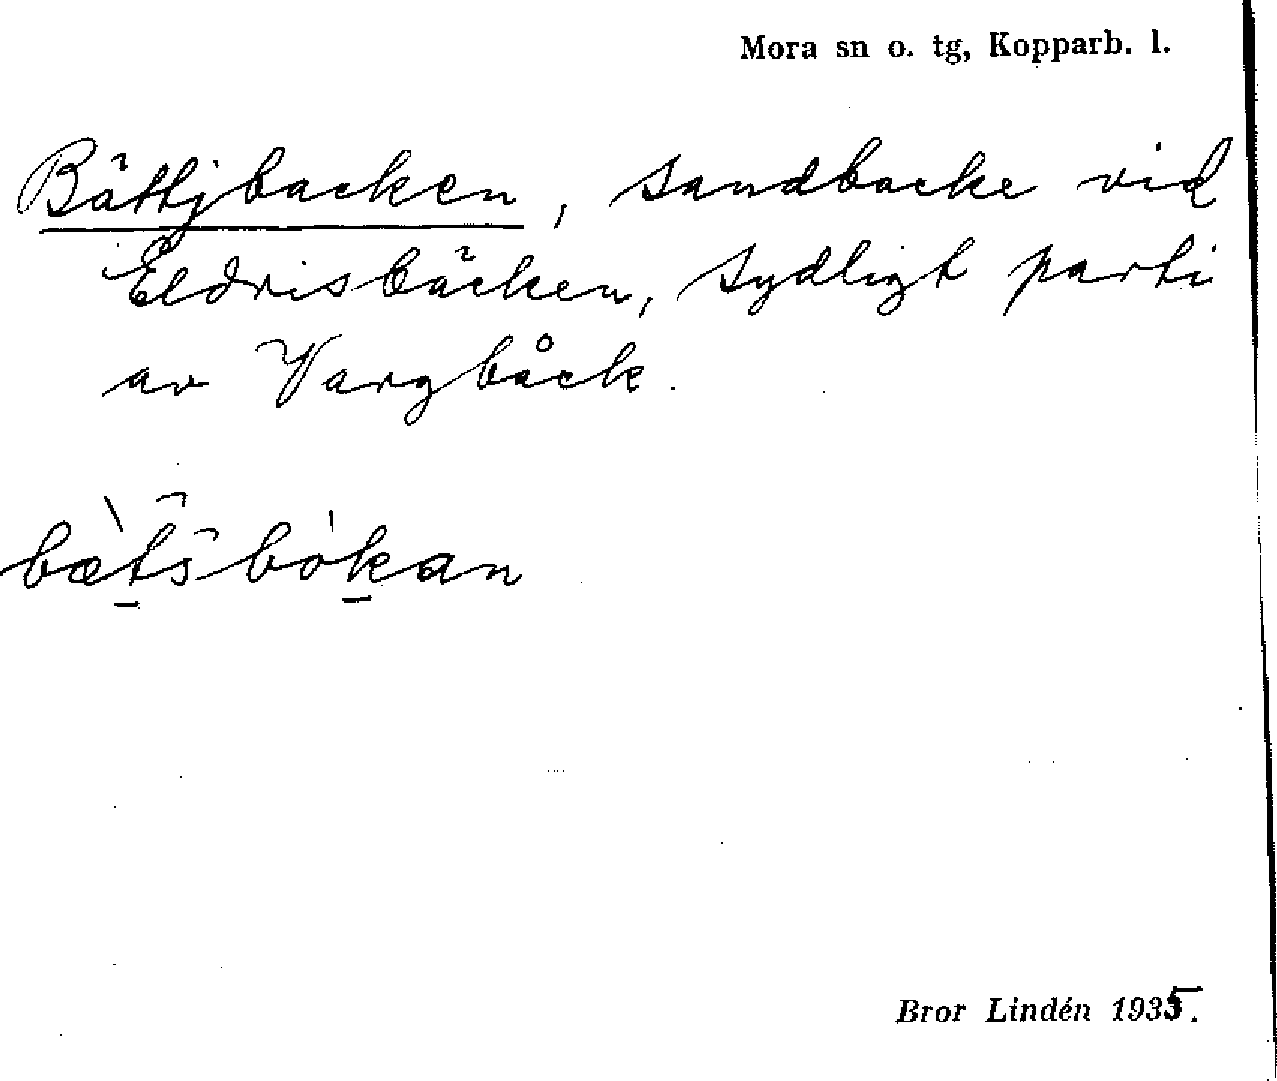 Mora sn o. tg, Kopparb. l.
Bättjbacken, sandbacke vid
Eldrisbäcken, sydligt parti
av Vargbåck.
bæ̀tšbòkan
Bror Lindén 1935.